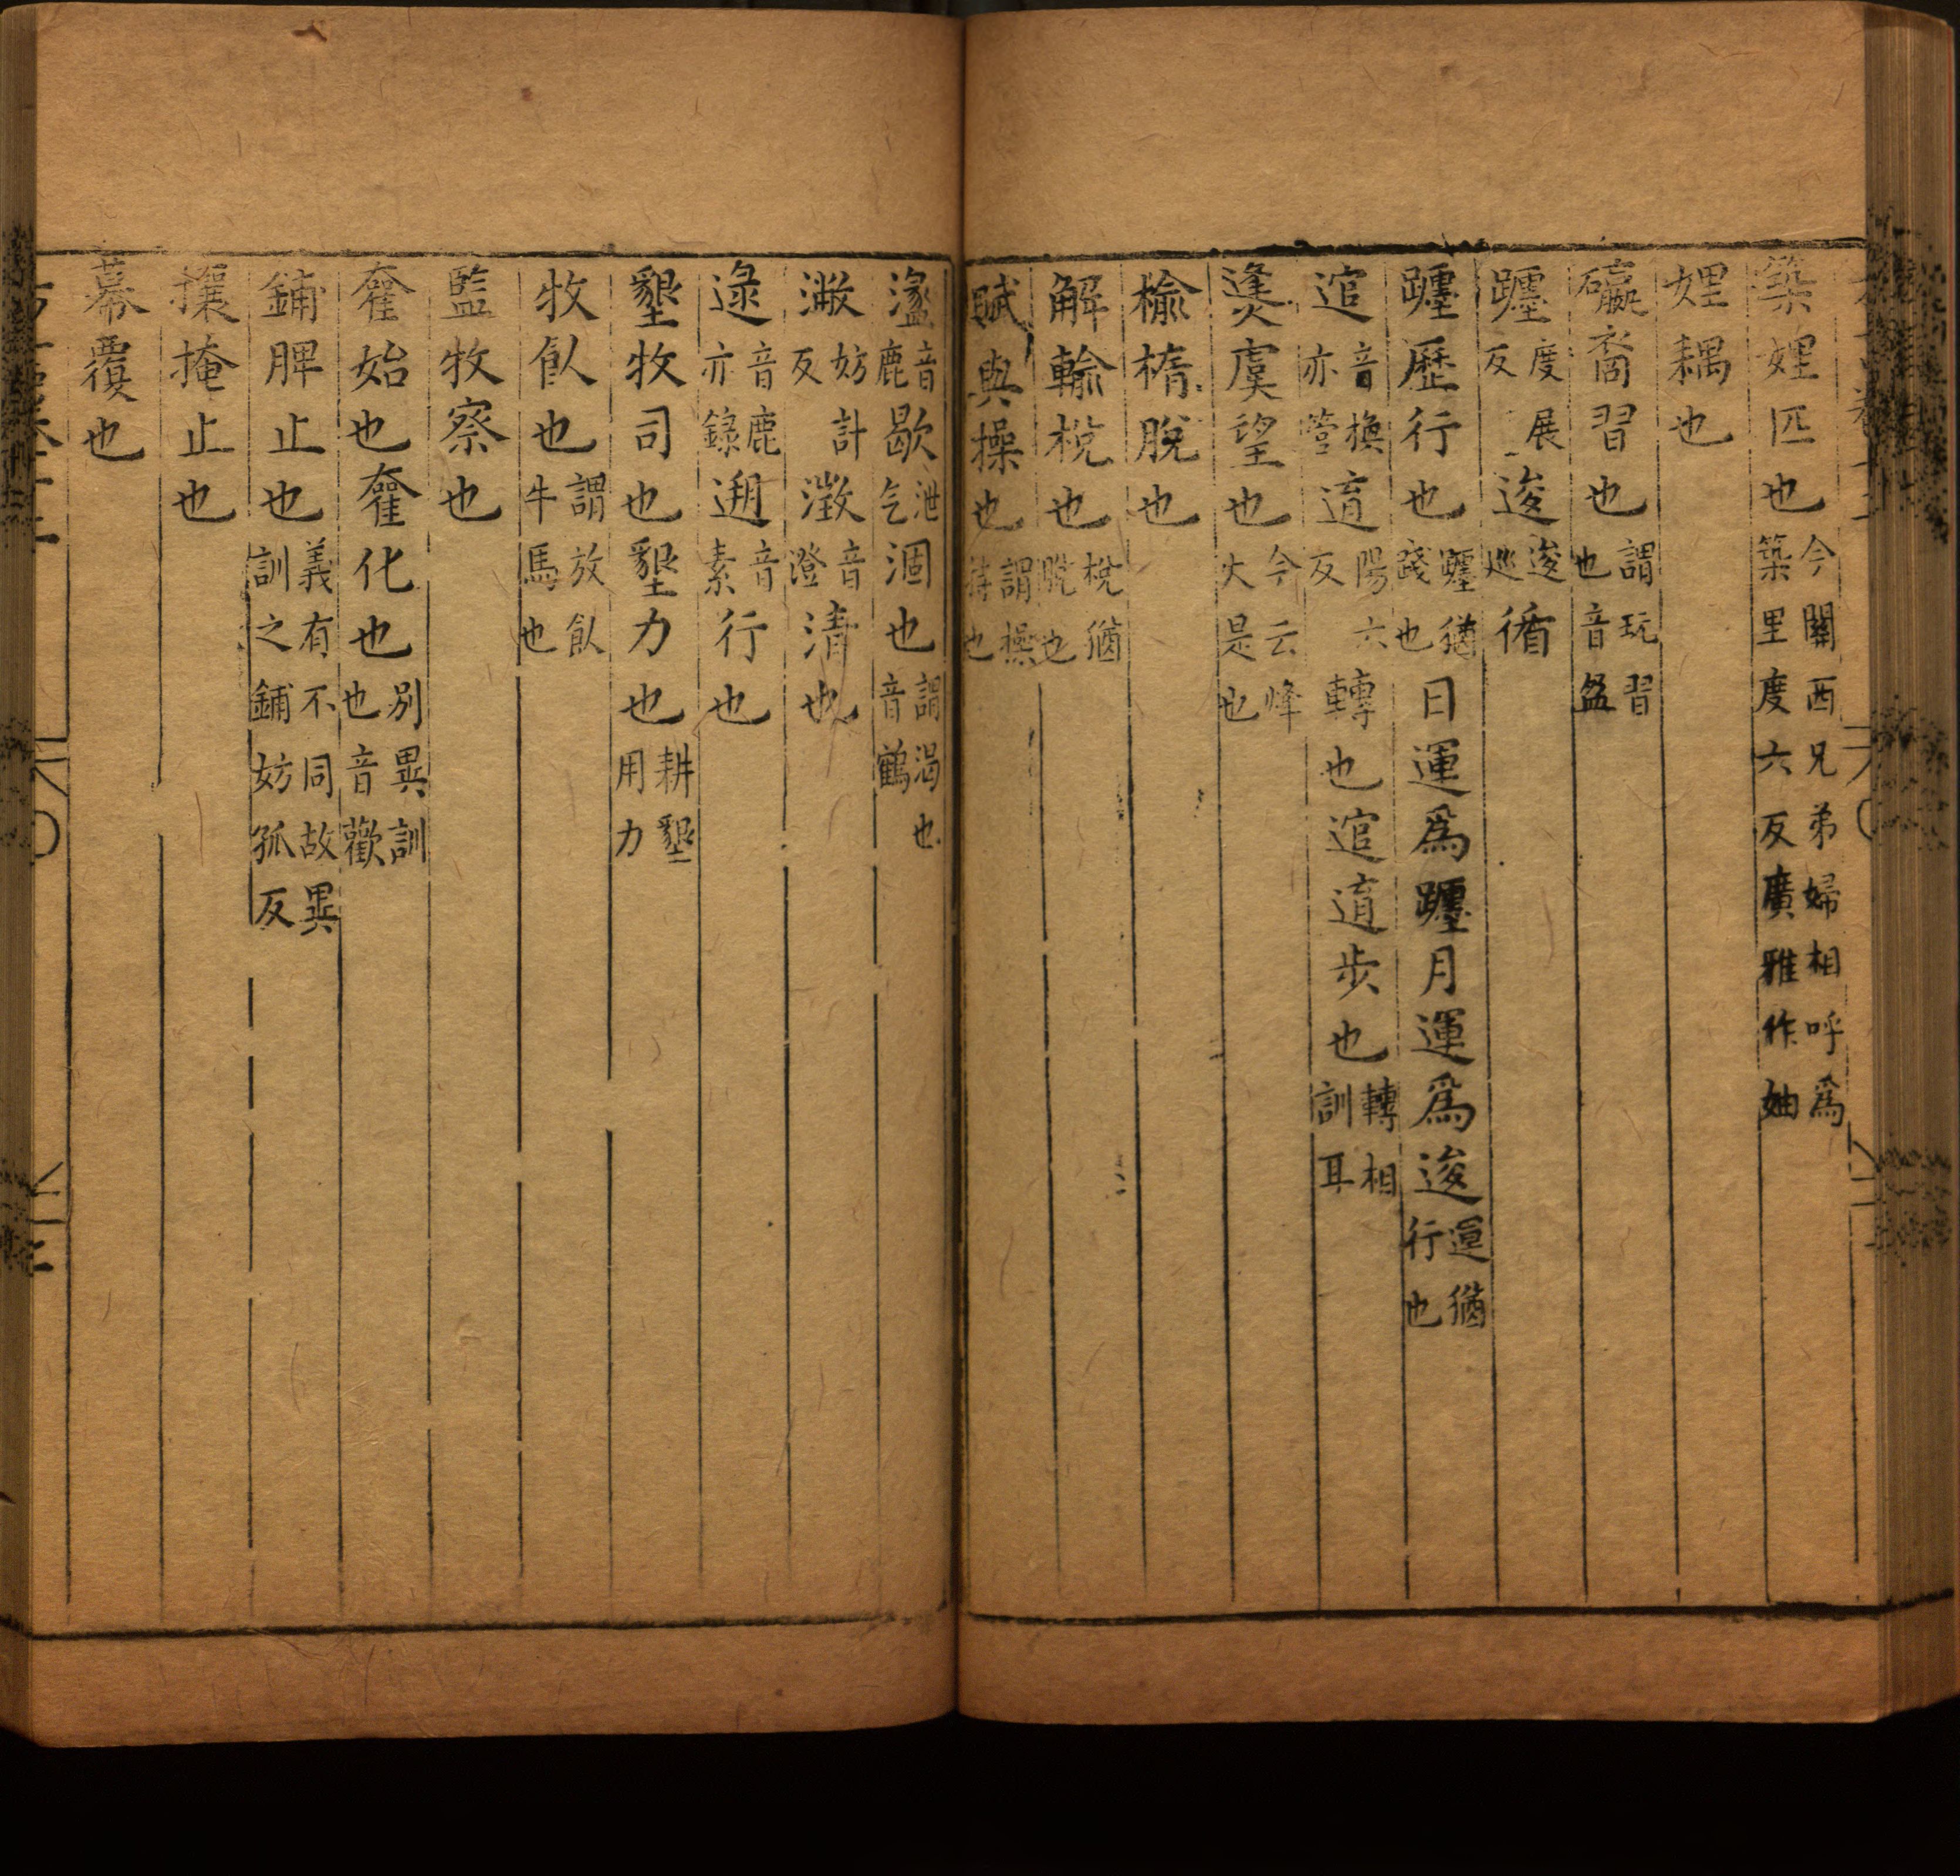 築娌匹也今關西兄弟婦相呼爲築里度六反廣雅作妯
娌耦也
礹裔習也謂玩習也音盈
躔度展反逡逡巡循
躔歷行也躔猶踐也日運爲躔月運爲逡運猶行也
逭音換亦管遒陽六反轉也逭遒步也轉相訓耳
㷭虞望也今云烽火是也
揄楕脫也
解輸梲也梲猶脫也
賦與操也謂操持也
盝音鹿歇泄气涸也謂渴也音鶴
潎妨計反澂音澄清也
逯音鹿亦錄遡音素行也
墾牧司也墾力也耕墾用力
牧飤也謂放飤牛馬也
監牧察也
奞始也奞化也別異訓也音歡
鋪脾止也義有不同故異訓之鋪妨孤反
攘掩止也
幕覆也